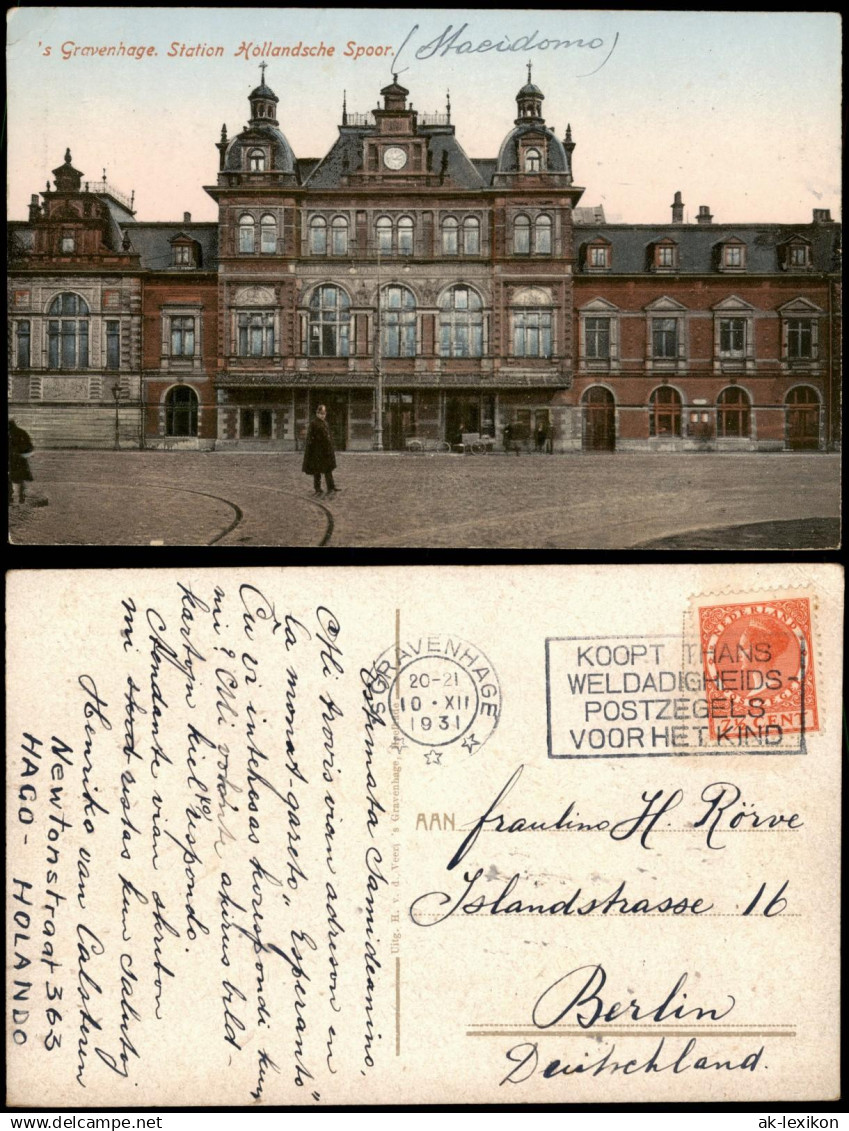 's Gravenhage. Station Hollandsche Spoor. (Stacidomo)
Estimata Samideanino,
Mi trovis vian adreson en
la monat-gazeto „Esperanto"
Ĉu vi interesas korespondi kun
mi? Mi volonte aĉirus bild-
kartojn kiel respondo.
Atendante vian skribon
mi restas kun salutoj
Henriko van Calsteren
Newtonstraat 363
HAGO - HOLANDO
Uitg. H. v. d. Veen 's Gravenhage,
'S GRAVENHAGE
20-21
10·XII
1931
KOOPT THANS
WELDADIGHEIDS-
POSTZEGELS
VOOR HET KIND
NEDERLAND
7½ CENT
AAN fraulino H Rörve
Islandstrasse 16
Berlin
Deutschland.
delcampe.net
ak-lexikon